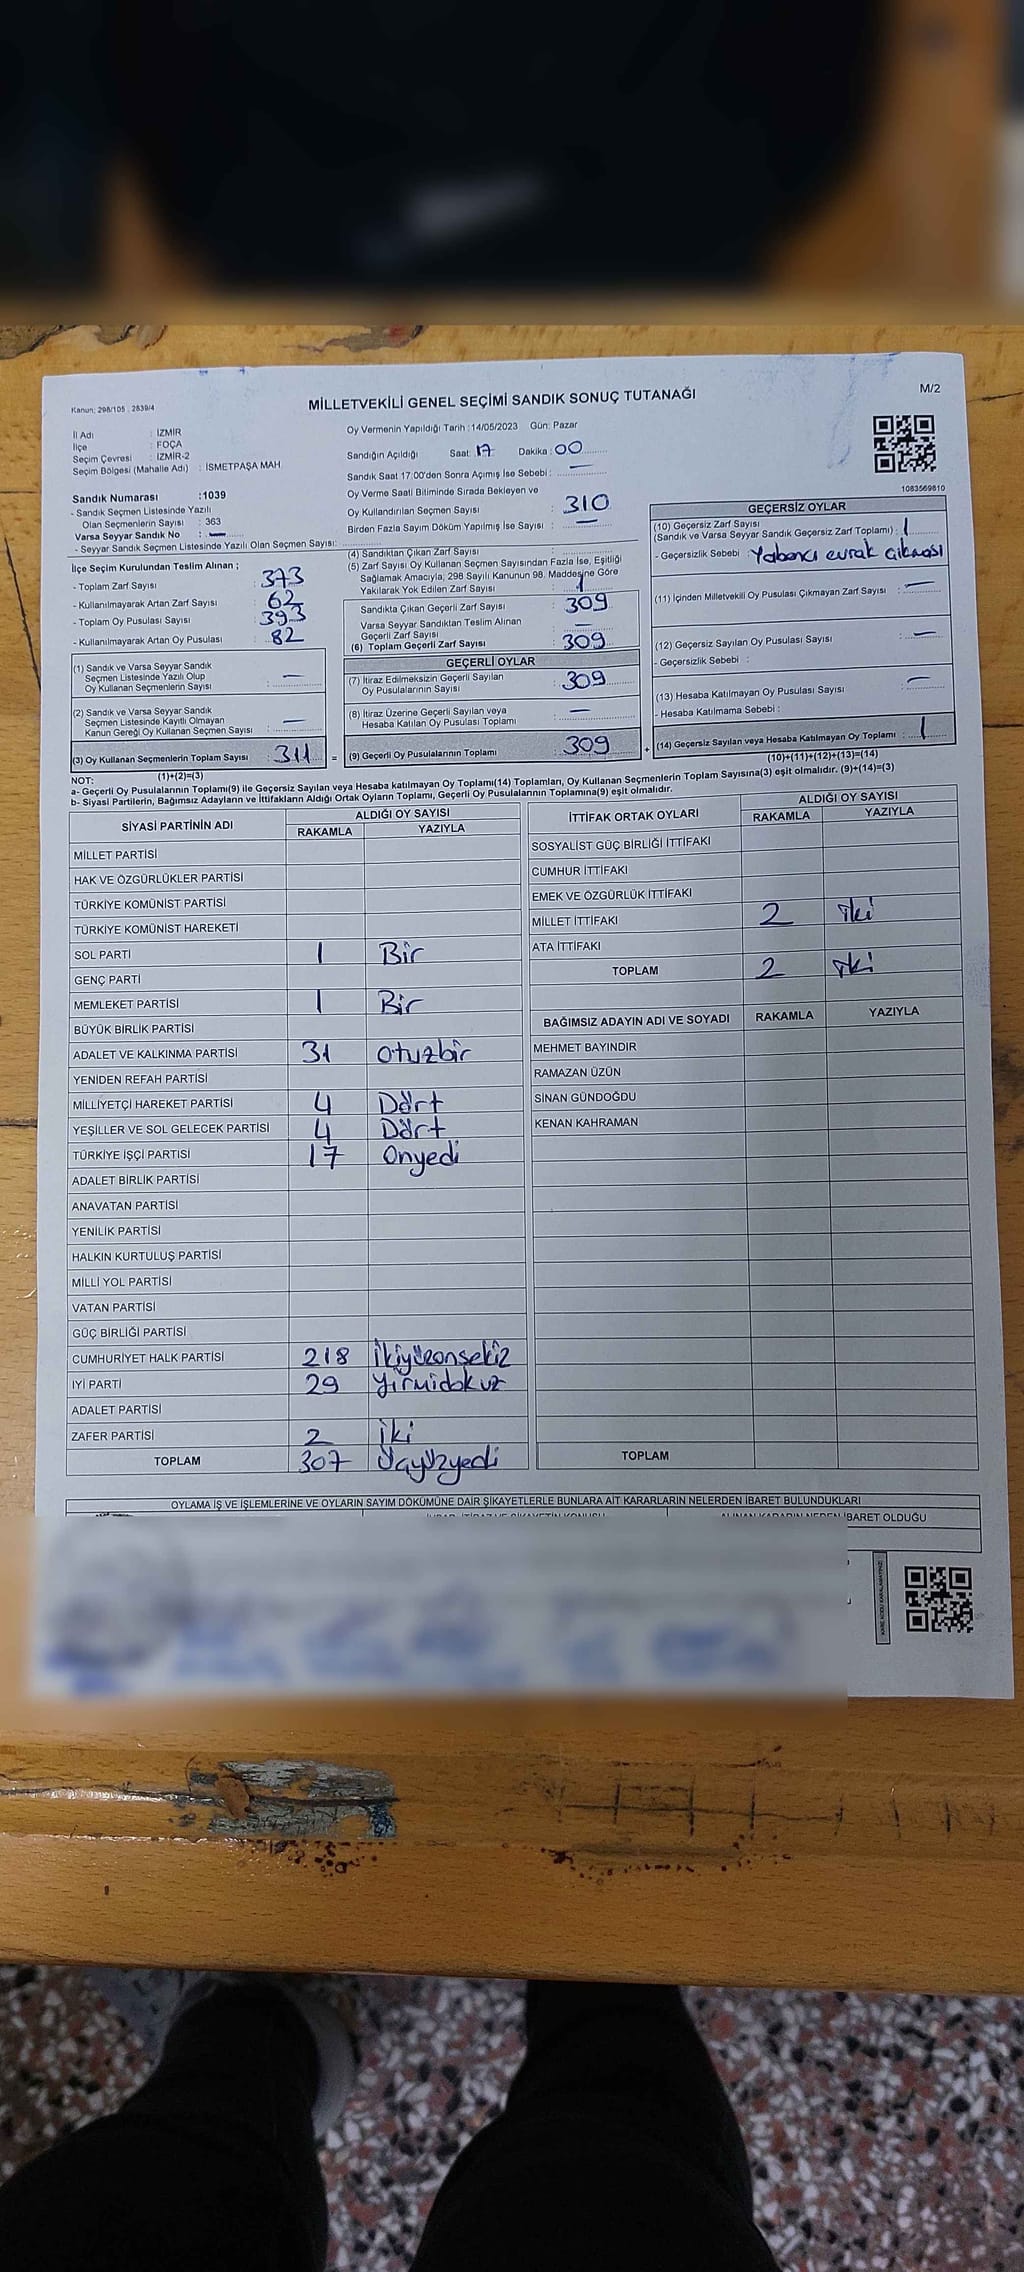 Kanun: 298/105 , 2839/4
MİLLETVEKİLİ GENEL SEÇİMİ SANDIK SONUÇ TUTANAĞI
M/2
İl Adı : İZMİR
İlçe : FOÇA
Seçim Çevresi : İZMİR-2
Seçim Bölgesi (Mahalle Adı) : İSMETPAŞA MAH
Sandık Numarası :1039
- Sandık Seçmen Listesinde Yazılı
Olan Seçmenlerin Sayısı : 363
Varsa Seyyar Sandık No : —
- Seyyar Sandık Seçmen Listesinde Yazılı Olan Seçmen Sayısı:
Oy Vermenin Yapıldığı Tarih :14/05/2023 Gün: Pazar
Sandığın Açıldığı Saat: 17 Dakika : 00
Sandık Saat 17:00'den Sonra Açımış İse Sebebi : —
Oy Verme Saati Bitiminde Sırada Bekleyen ve
Oy Kullandırılan Seçmen Sayısı : 310
Birden Fazla Sayım Döküm Yapılmış İse Sayısı : —
1083569810
İlçe Seçim Kurulundan Teslim Alınan ;
- Toplam Zarf Sayısı : 373
- Kullanılmayarak Artan Zarf Sayısı : 62
- Toplam Oy Pusulası Sayısı : 393
- Kullanılmayarak Artan Oy Pusulası : 82
(1) Sandık ve Varsa Seyyar Sandık
Seçmen Listesinde Yazılı Olup
Oy Kullanan Seçmenlerin Sayısı : —
(2) Sandık ve Varsa Seyyar Sandık
Seçmen Listesinde Kayıtlı Olmayan
Kanun Gereği Oy Kullanan Seçmen Sayısı : —
(3) Oy Kullanan Seçmenlerin Toplam Sayısı : 311 =
(1)+(2)=(3)
(4) Sandıktan Çıkan Zarf Sayısı :
(5) Zarf Sayısı Oy Kullanan Seçmen Sayısından Fazla İse, Eşitliği
Sağlamak Amacıyla, 298 Sayılı Kanunun 98. Maddesine Göre
Yakılarak Yok Edilen Zarf Sayısı : 1
Sandıkta Çıkan Geçerli Zarf Sayısı : 309
Varsa Seyyar Sandıktan Teslim Alınan
Geçerli Zarf Sayısı : —
(6) Toplam Geçerli Zarf Sayısı : 309
GEÇERLİ OYLAR
(7) İtiraz Edilmeksizin Geçerli Sayılan
Oy Pusulalarının Sayısı : 309
(8) İtiraz Üzerine Geçerli Sayılan veya
Hesaba Katılan Oy Pusulası Toplamı : —
(9) Geçerli Oy Pusulalarının Toplamı : 309 +
GEÇERSİZ OYLAR
(10) Geçersiz Zarf Sayısı
(Sandık ve Varsa Seyyar Sandık Geçersiz Zarf Toplamı) : 1
- Geçersizlik Sebebi : Yabancı evrak çıkması
(11) İçinden Milletvekili Oy Pusulası Çıkmayan Zarf Sayısı : —
(12) Geçersiz Sayılan Oy Pusulası Sayısı : —
- Geçersizlik Sebebi :
(13) Hesaba Katılmayan Oy Pusulası Sayısı : —
- Hesaba Katılmama Sebebi :
(14) Geçersiz Sayılan veya Hesaba Katılmayan Oy Toplamı : 1
(10)+(11)+(12)+(13)=(14)
NOT:
a- Geçerli Oy Pusulalarının Toplamı(9) ile Geçersiz Sayılan veya Hesaba katılmayan Oy Toplamı(14) Toplamları, Oy Kullanan Seçmenlerin Toplam Sayısına(3) eşit olmalıdır. (9)+(14)=(3)
b- Siyasi Partilerin, Bağımsız Adayların ve İttifakların Aldığı Ortak Oyların Toplamı, Geçerli Oy Pusulalarının Toplamına(9) eşit olmalıdır.
SİYASİ PARTİNİN ADI ALDIĞI OY SAYISI
RAKAMLA YAZIYLA
MİLLET PARTİSİ
HAK VE ÖZGÜRLÜKLER PARTİSİ
TÜRKİYE KOMÜNİST PARTİSİ
TÜRKİYE KOMÜNİST HAREKETİ
SOL PARTİ 1 Bir
GENÇ PARTİ
MEMLEKET PARTİSİ 1 Bir
BÜYÜK BİRLİK PARTİSİ
ADALET VE KALKINMA PARTİSİ 31 otuzbir
YENİDEN REFAH PARTİSİ
MİLLİYETÇİ HAREKET PARTİSİ 4 Dört
YEŞİLLER VE SOL GELECEK PARTİSİ 4 Dört
TÜRKİYE İŞÇİ PARTİSİ 17 Onyedi
ADALET BİRLİK PARTİSİ
ANAVATAN PARTİSİ
YENİLİK PARTİSİ
HALKIN KURTULUŞ PARTİSİ
MİLLİ YOL PARTİSİ
VATAN PARTİSİ
GÜÇ BİRLİĞİ PARTİSİ
CUMHURİYET HALK PARTİSİ 218 İkiyüzonsekiz
İYİ PARTİ 29 Yirmidokuz
ADALET PARTİSİ
ZAFER PARTİSİ 2 İki
TOPLAM 307 Üçyüzyedi
İTTİFAK ORTAK OYLARI ALDIĞI OY SAYISI
RAKAMLA YAZIYLA
SOSYALİST GÜÇ BİRLİĞİ İTTİFAKI
CUMHUR İTTİFAKI
EMEK VE ÖZGÜRLÜK İTTİFAKI
MİLLET İTTİFAKI 2 iki
ATA İTTİFAKI
TOPLAM 2 iki
BAĞIMSIZ ADAYIN ADI VE SOYADI RAKAMLA YAZIYLA
MEHMET BAYINDIR
RAMAZAN ÜZÜN
SİNAN GÜNDOĞDU
KENAN KAHRAMAN
TOPLAM
OYLAMA İŞ VE İŞLEMLERİNE VE OYLARIN SAYIM DÖKÜMÜNE DAİR ŞİKAYETLERLE BUNLARA AİT KARARLARIN NELERDEN İBARET BULUNDUKLARI
İBARET OLDUĞU